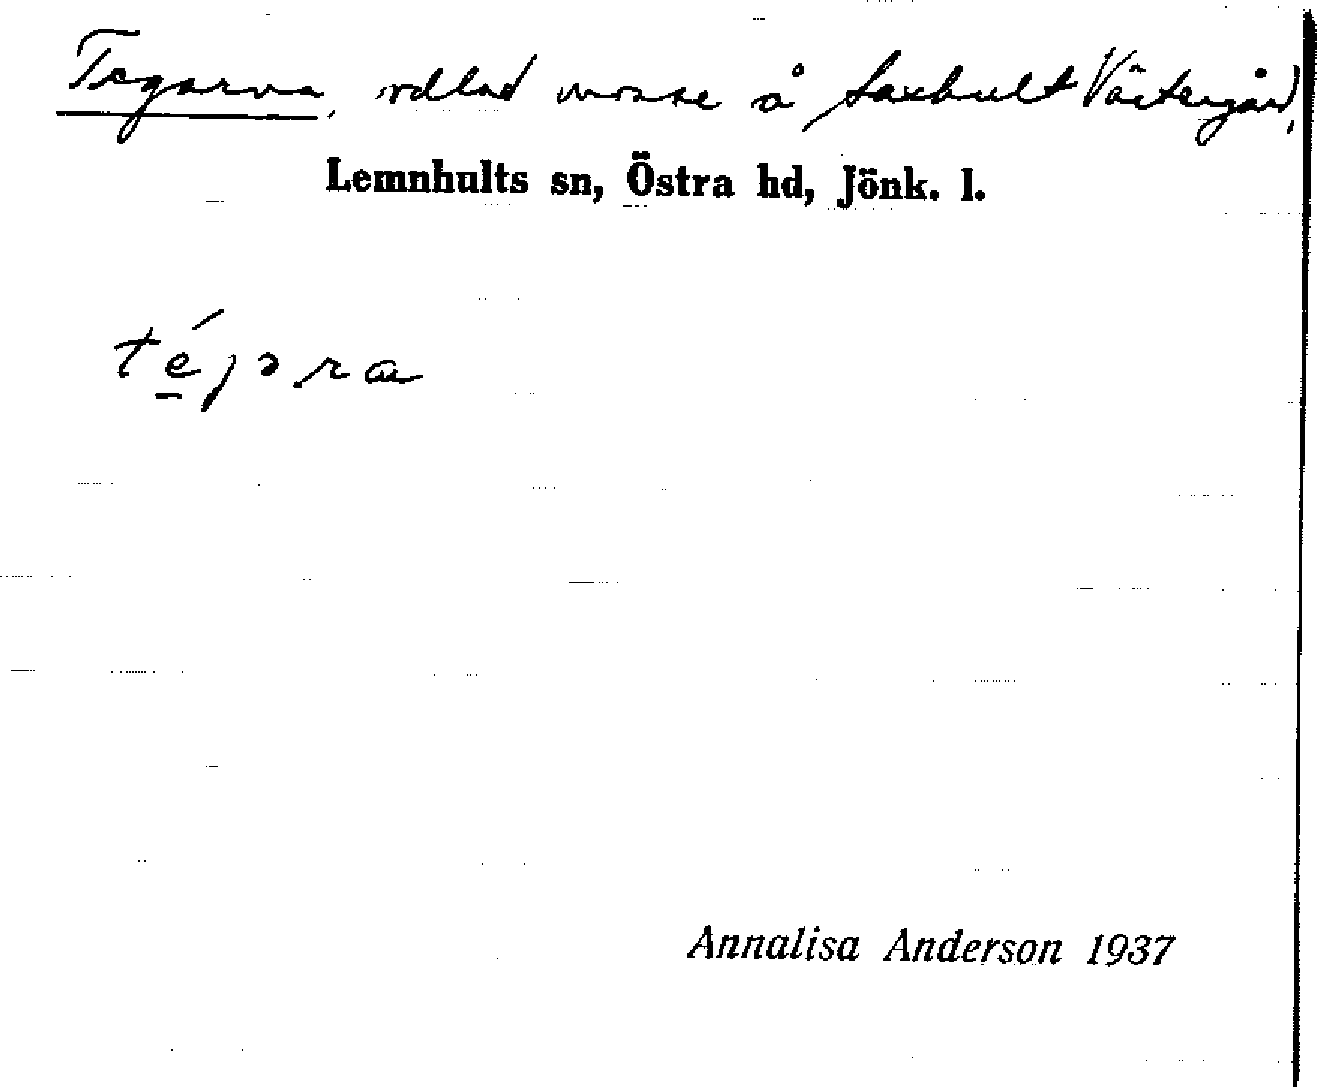 Tegarna, odlad mosse å Saxhult Västergård,
Lemnhults sn, Östra hd, Jönk. l.
té̱jəra
Annalisa Anderson 1937